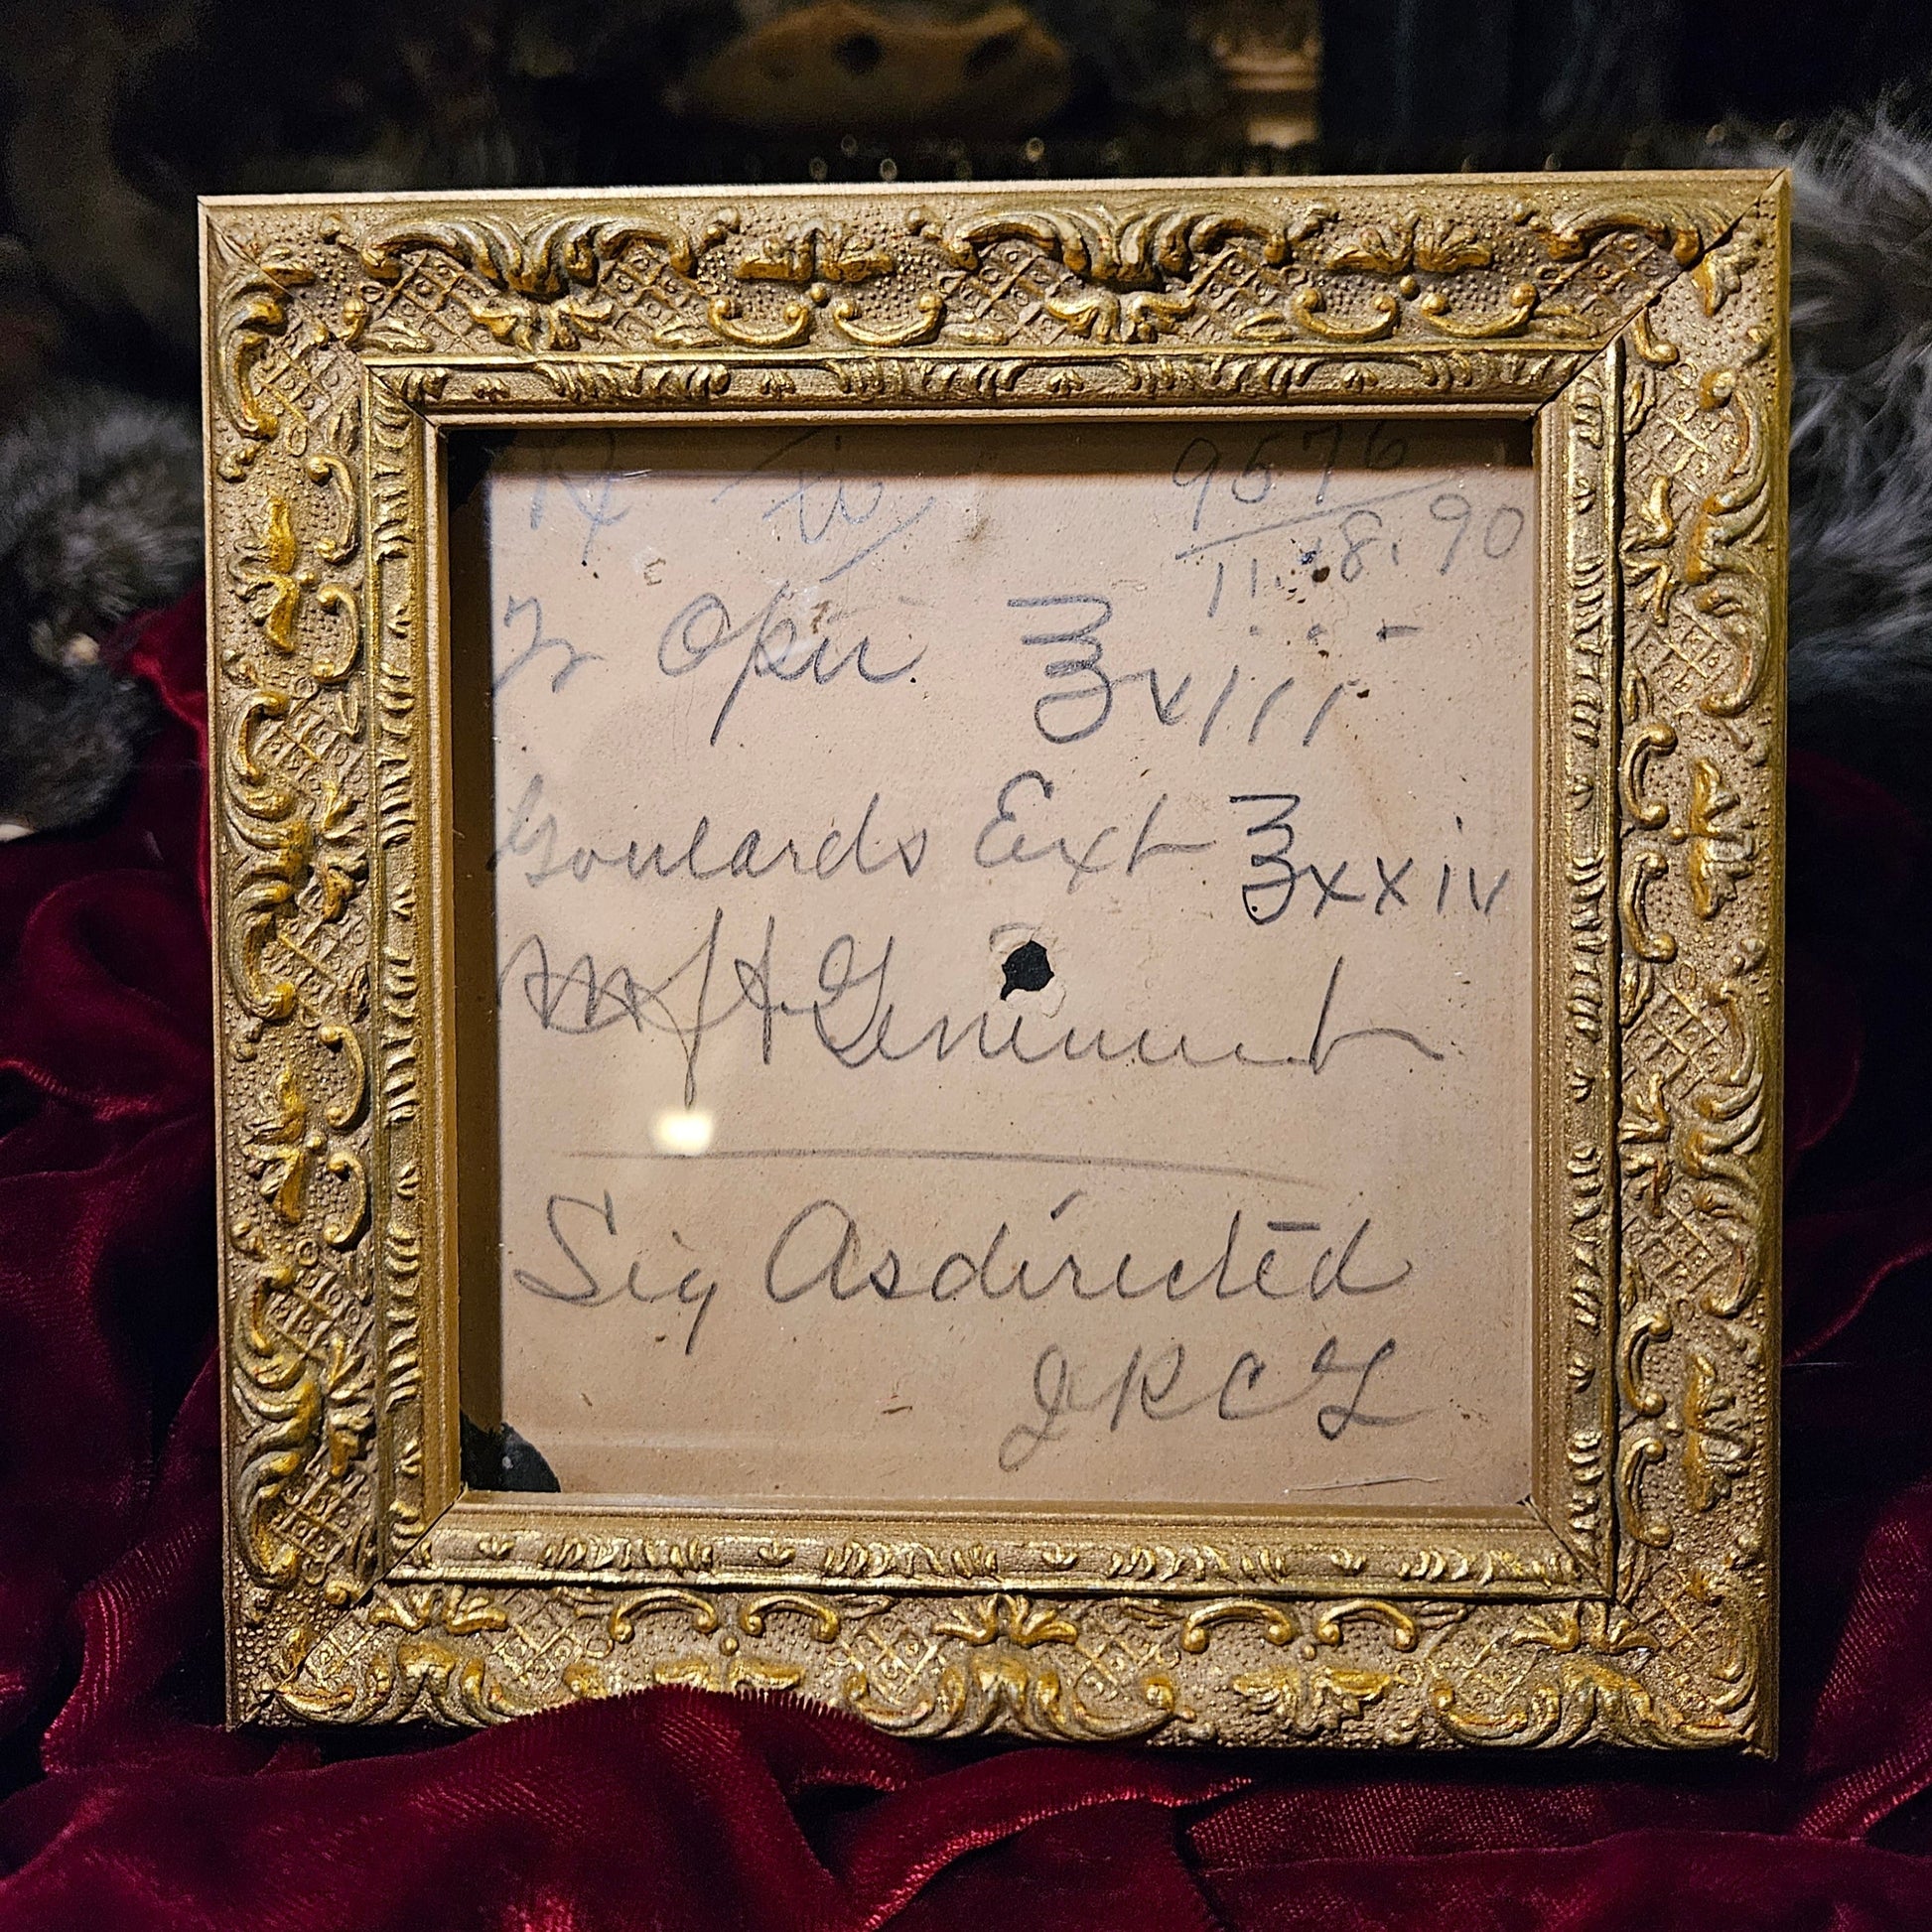 ℞ 9676
11.8.90
Tr Opii ℥viii
Goulards Ext ℥xxiv
M
Sig As directed
J R C G